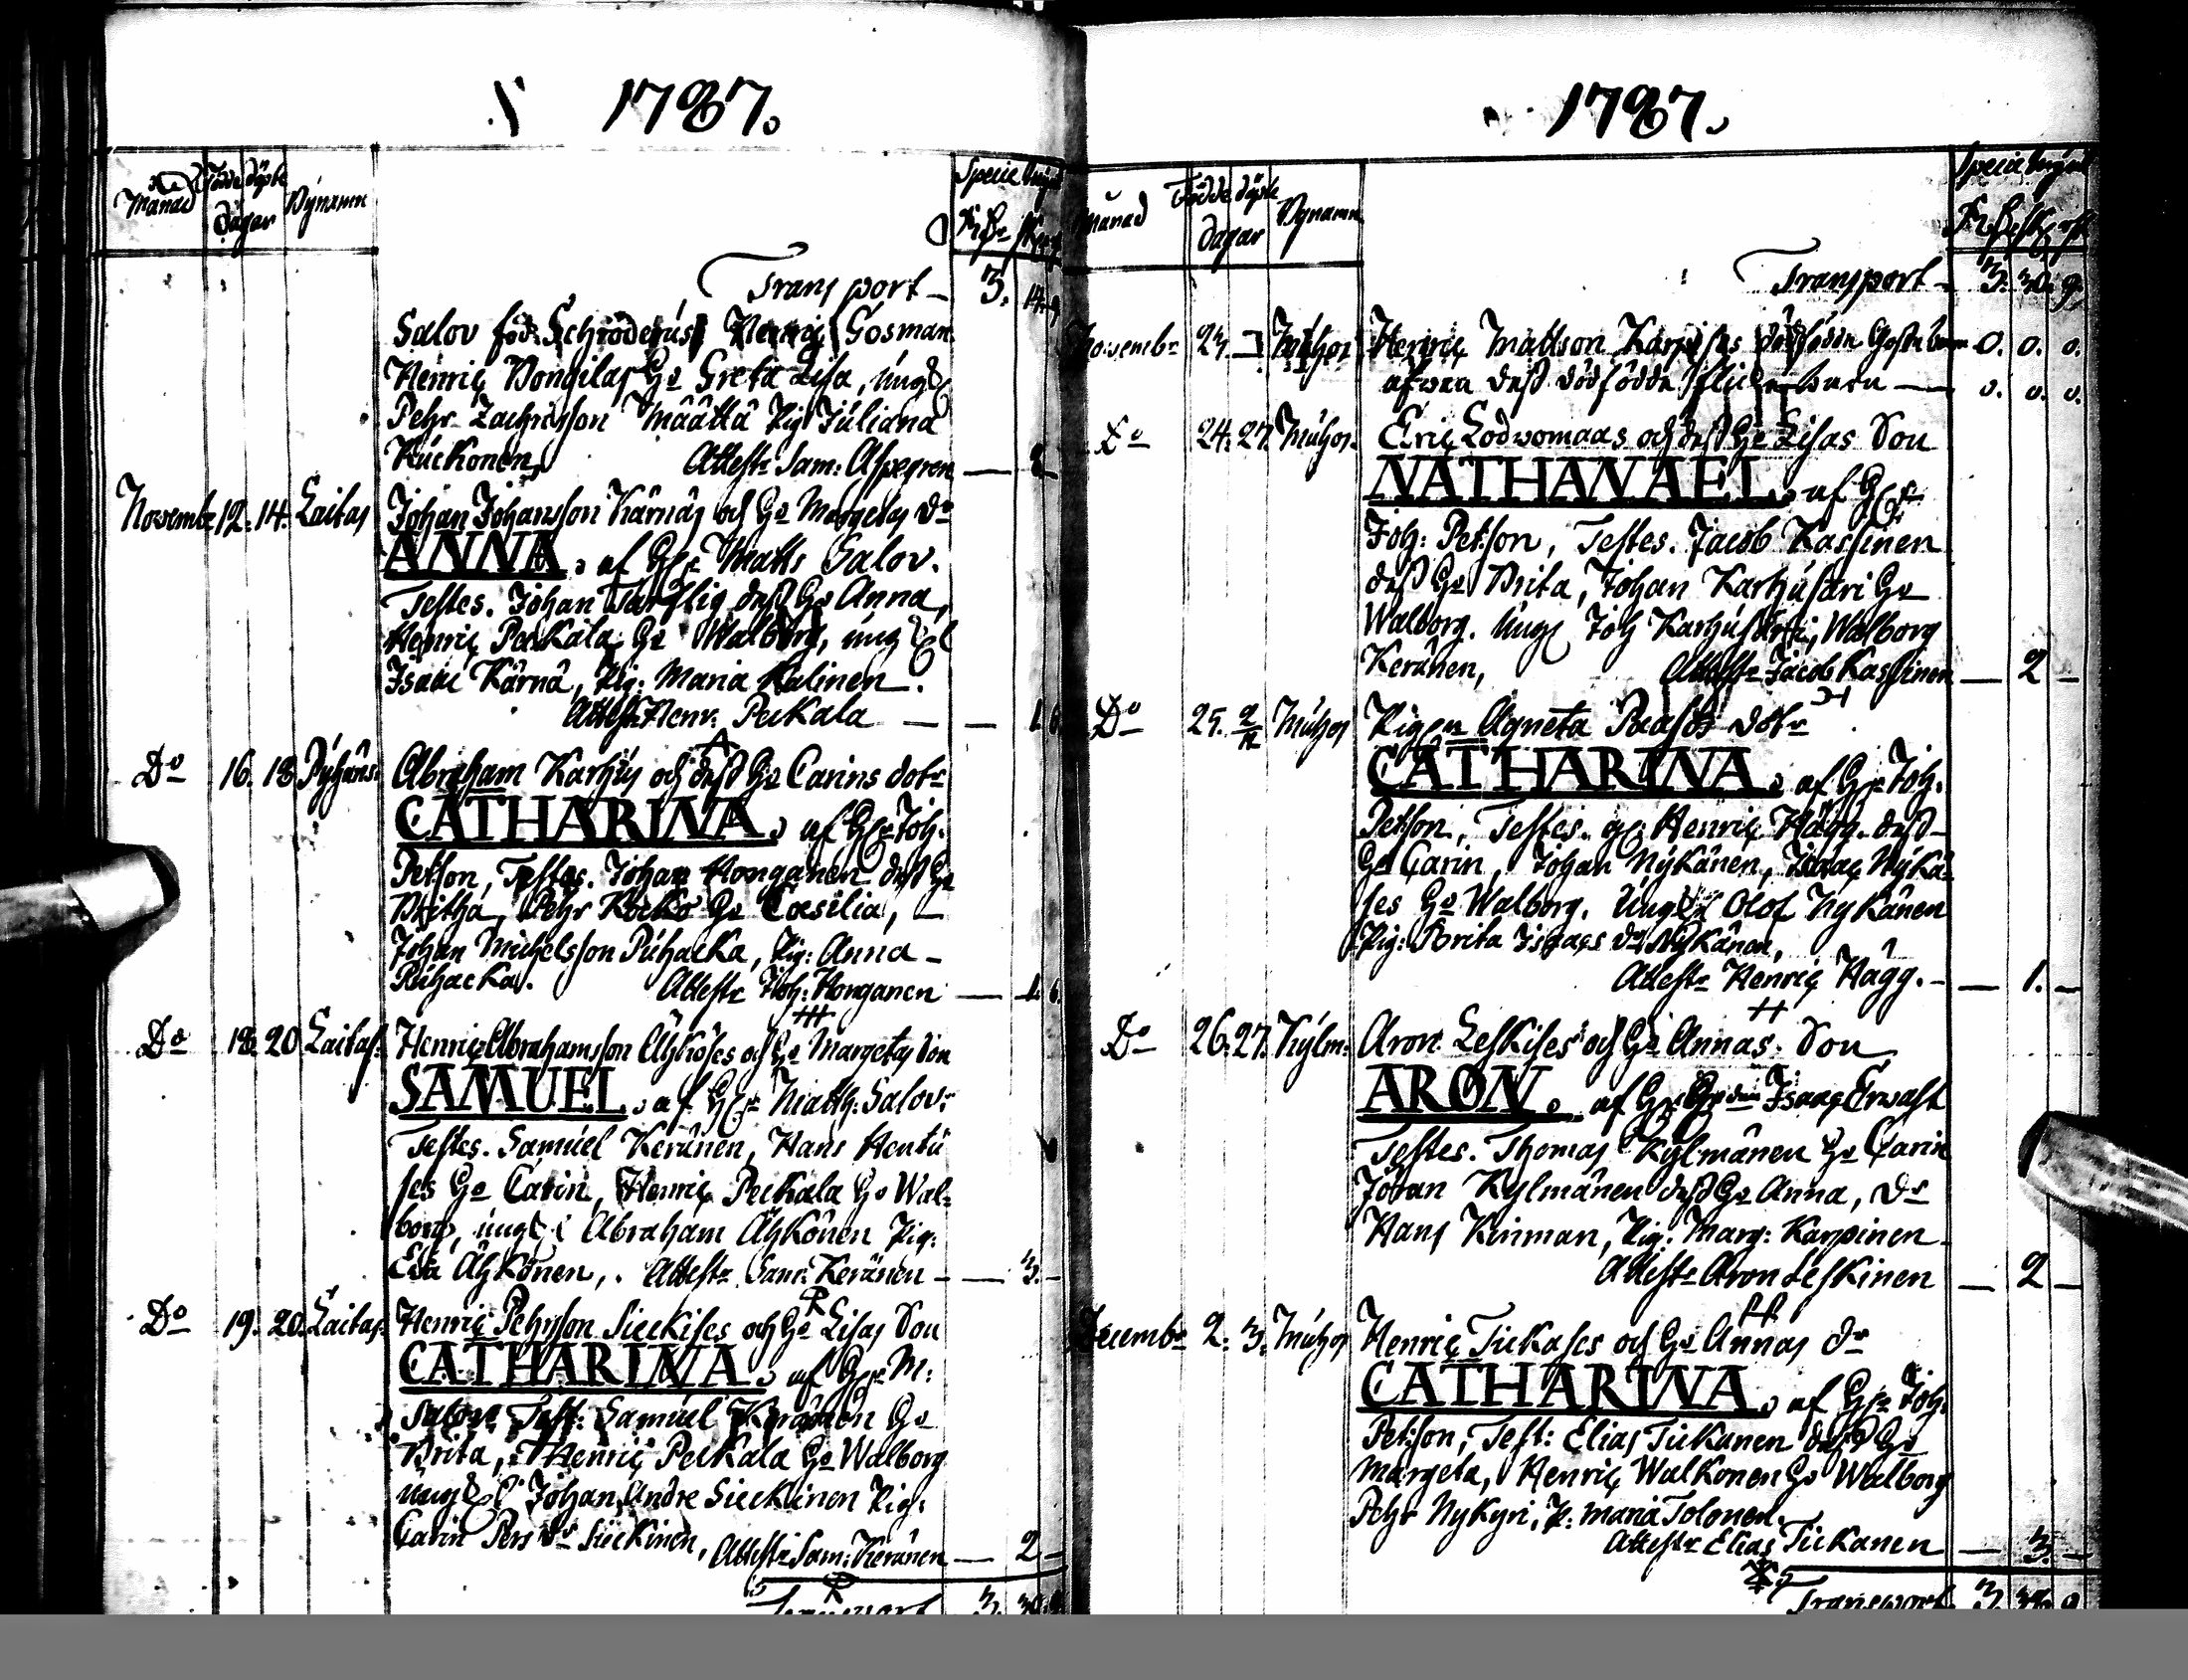 1787.
Månad Födde döpte dagar Bÿnamn Specie
Transport 3. 14.
Salov föd. Schroderus, Henric Gösman
Henric Pongilas Ho Greta Lisa, ung
Pehr Zachrisson Määttä Pig Juliana
Kuckonen, Attestr Sam: Aspegren
Novembr 12. 14. Laitas Johan Johansson Kärnäs och Ho Margetas dr
ANNA. af Matts Salov.
Testes. Johan dess Ho Anna,
Henric Peckala Ho Walborg, ung
Isaac Kärnä, Pig: Maria Kalinen.
Attestr Henr. Peckala — — 1 6
Do 16. 18 Pÿhäns. Abraham Karhus och dess Ho Carins dotr
CATHARINA. af Joh.
Petson, Testes. Johan Honganen dess Ho
Britha, Pehr Ho Cæsilia,
Johan Michelsson Puhacka, Pig: Anna
Puhacka. Attestr Joh: Honganen — 1. 6.
Do 18. 20 Laitas. Henric Abrahamsson Ähköses och Ho Margetas Son
SAMUEL. af Matth: Salov.
Testes. Samuel Keränen, Hans
ses Ho Carin, Henric Peckala Ho Wal-
borg, ung Abraham Ähkönen Pig:
Ähkönen, Attestr Sam: Keränen — — 3. —
Do 19. 20. Laitas. Henric Pehrsson Sieckises och Ho Lisas Son
CATHARINA. af M:
Salov. Test: Samuel Keränen Ho
Brita, Henric Peckala Ho Walborg
ung Johan Andre Sieckinen Pig:
Carin Pers dr Sieckinen, Attestr Sam: Keränen — 2 —
Transport 3.
1787.
Månad Födde döpte dagar Bynamn Specie
Transport 3. 30. 9.
Novembr 23. Muhos Henric Mattson Karpises dödfödde Gossebarn 0. 0. 0.
afven dess dödfödde flicke barn — 0. 0. 0.
Do 24. 27. Muhos. Eric Lodwomaas och dess Ho Lisas Son
NATHANAEL. af
Joh: Petson, Testes. Jacob Kassinen
dess Ho Brita, Johan Karhusari Ho
Walborg. Ung Joh Karhusari, Walborg
Keränen, Attestr Jacob Kassinen — 2 —
Do 25. 2/12 Muhos Pigan Agneta dotr
CATHARINA. af Joh.
Petson, Testes. Henric Hägg. dess
Ho Carin, Johan Nÿkänen, Isaac Nÿkä-
ses Ho Walborg. Ung Olof Nykänen
Pig: Brita Isaacs dr Nÿkänen,
Attestr Henric Hägg. — 1. —
Do 26. 27. Kylm: Aron Leskises och Ho Annas Son
ARON. af Isaac Erwast
Testes. Thomas Kylmänen Ho Carin
Johan Kylmänen dess Ho Anna, Dr
Hans Kinman, Pig: Marg: Karpinen
Attestr Aron Leskinen — 2 —
Decembr 2. 3. Muhos Henric Tickases och Ho Annas dr
CATHARINA. af Joh.
Petson, Test: Elias Tickanen dess Ho
Margeta, Henric Walkonen Ho Walborg
Pehr Nykyri, P: Maria Tolonen.
Attestr Elias Tickanen — 3. —
Transport 3.